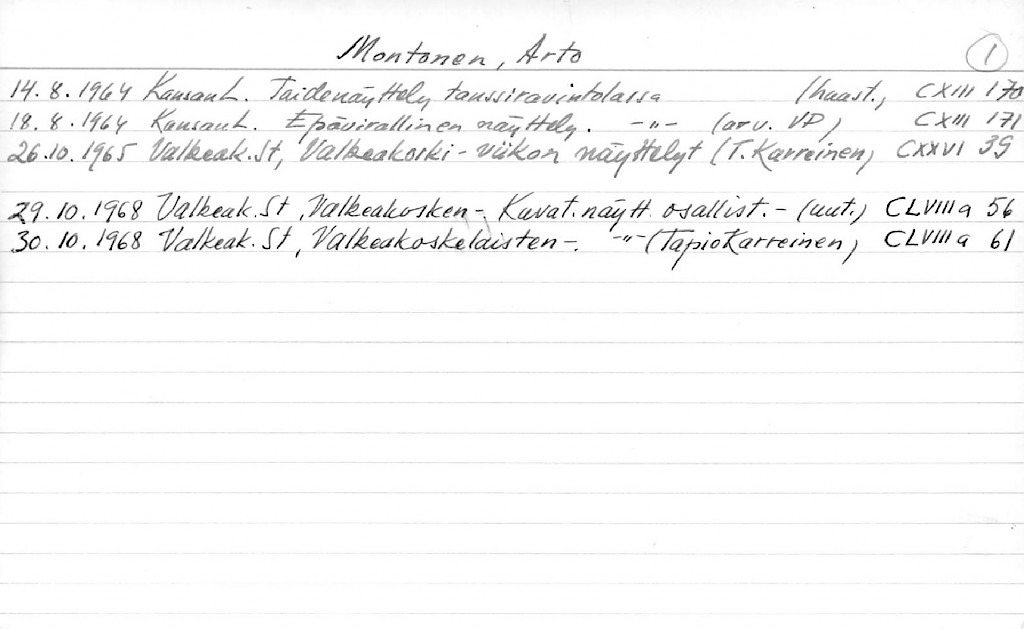 Montonen, Arto 1
14.8.1964 KansanL. Taidenäyttely tanssiravintolassa (haast.) CXIII 170
18.8.1964 KansanL. Epävirallinen näyttely. -"- (arv. VP) CXIII 171
26.10.1965 Valkeak.St, Valkeakoski-viikon näyttelyt (T. Karreinen) CXXVI 39
29.10.1968 Valkeak.St, Valkeakosken - Kuvat.näytt. osallist. - (uut.) CLVIIIa 56
30.10.1968 Valkeak.St, Valkeakoskelaisten -. -"- (Tapio Karreinen) CLVIIIa 61